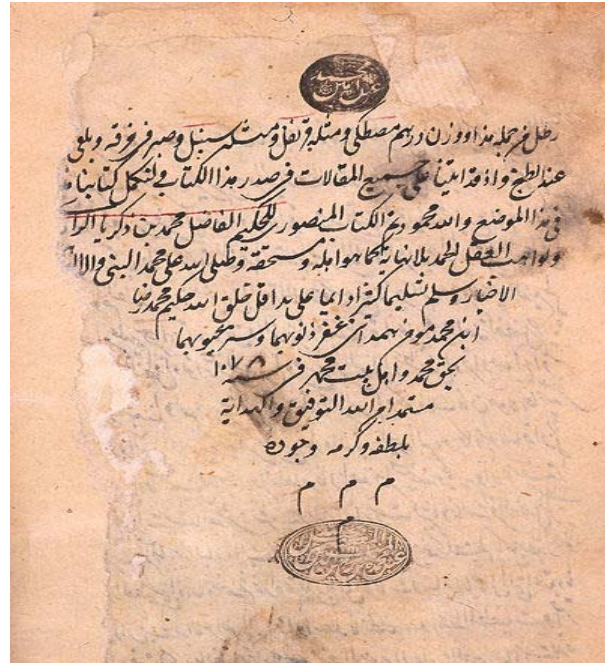 رطل من جملة هذا ووزن درهم مصطكى ومثله قرنفل ومثله سنبل وصير في خرقة ويلقى
عند الطبخ واذ قد اتينا على جميع المقالات في صدر هذا الكتاب فلنكمل كتابنا
في هذا الموضع والله محمود تم الكتاب المنصوري للحكيم الفاضل محمد بن زكريا
ولواهب العقل الحمد بلا نهاية كما هو اهله ومستحقه وصلى الله على محمد النبي واله
الاخيار وسلم تسليما كثيرا دايما على يد اقل خلق الله حكيم محمد رضا
ابن محمد مومن همداني غفر ذنوبهما وستر عيوبهما
بحق محمد واهل بيت محمد في سنه ١٠٧٨
مستمدا من الله التوفيق والهداية
بلطفه وكرمه وجوده
م م م
م